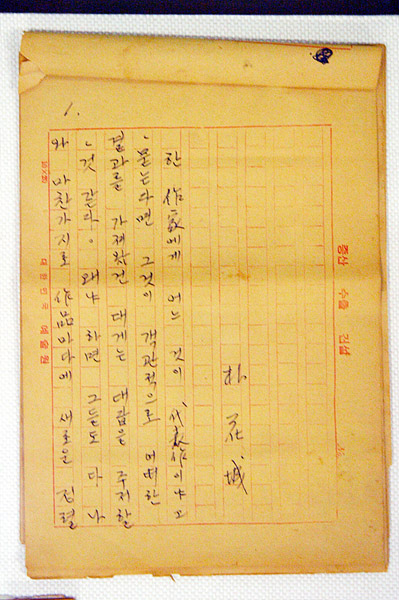 증산 수출 건설
朴花城
한 作家에게 어느 것이 代表作이냐고
묻는다면 그것이 객관적으로 어떠한
결과를 가져왔건 대게는 대답을 주저할
것 같다. 왜냐 하면 그들도 다 나
와 마찬가지로 作品마다에 새로운 정렬
1.
대한민국 예술원